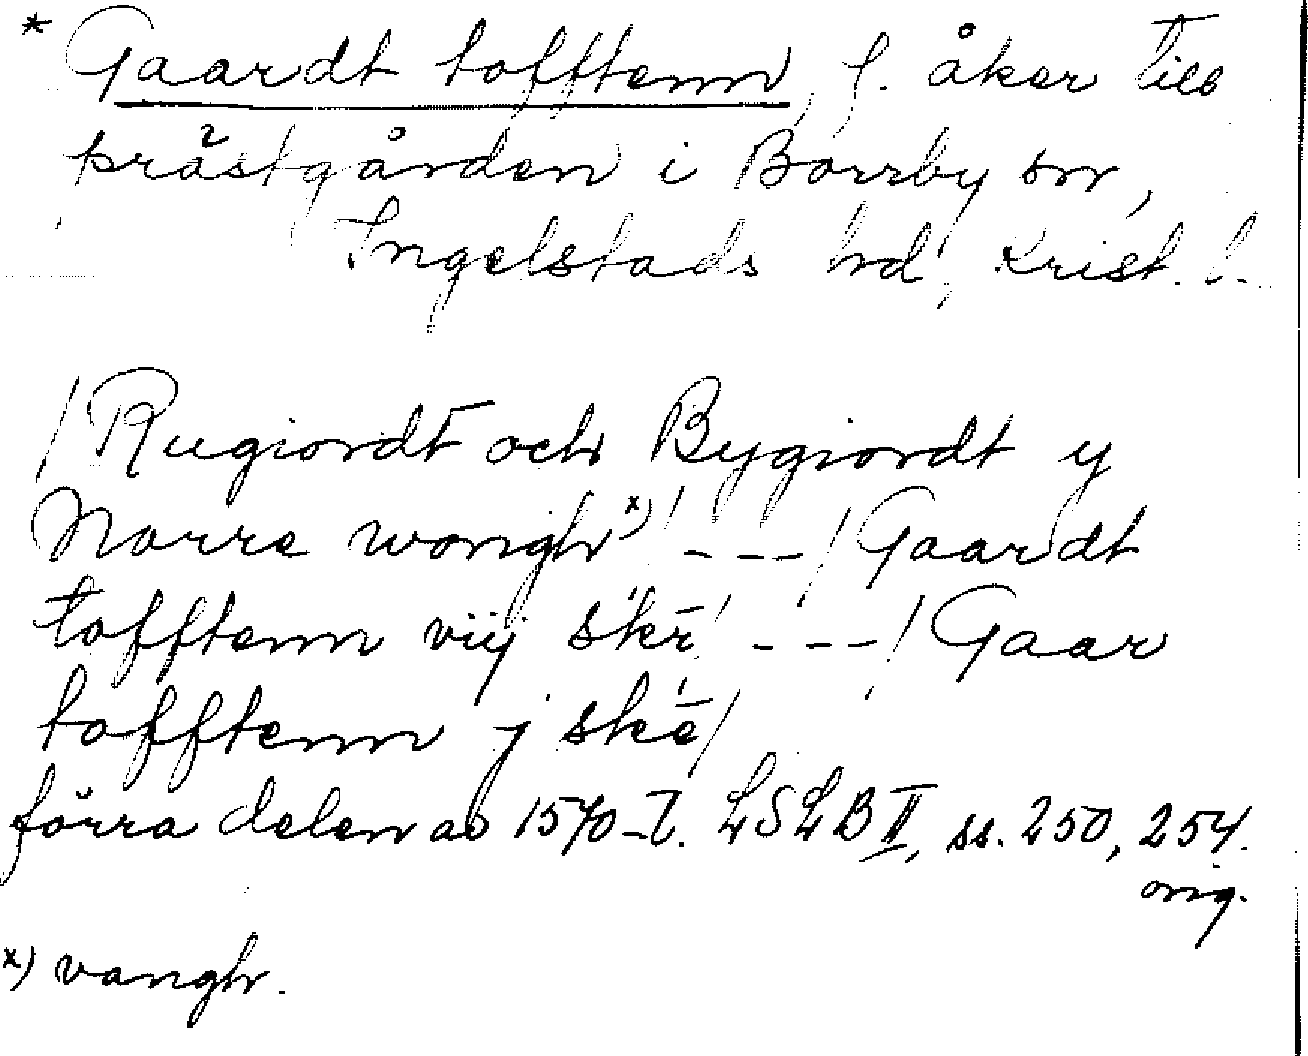 * Gaardt tofftenn, f. åker till
prästgården i Borrby sn,
Ingelstads hd, Krist. l.
/Rugiordt och Bygiordt y
Norre wongh x)/ ---/Gaardt
tofftenn viij skē/ ---/Gaar
tofftenn j skē/
förra delen av 1570-t. LSLB II, ss. 250, 254.
orig.
x) vangh.